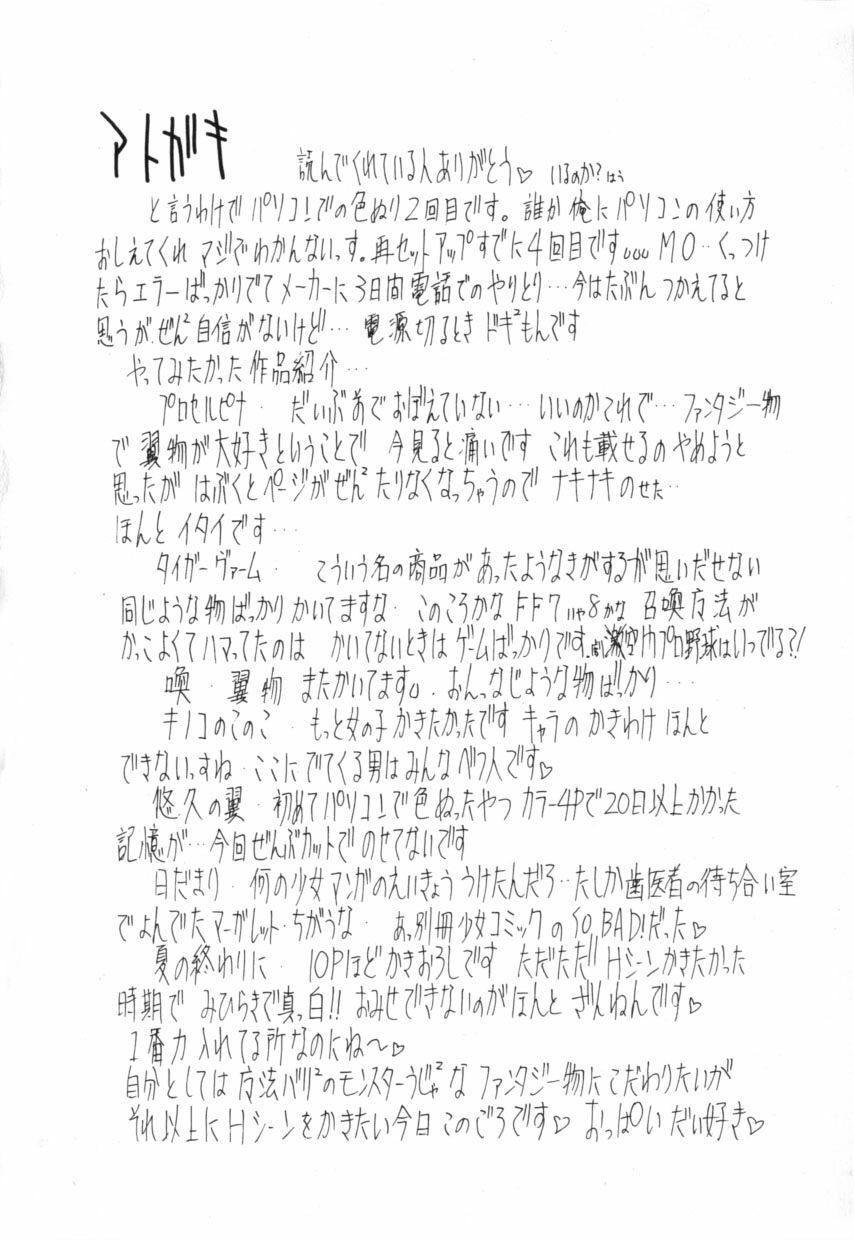 アトガキ
読んでくれている人ありがとう♡ いるのか?はぅ
と言うわけで パソコンでの色ぬり2回目です。誰か俺にパソコンの使い方
おしえてくれ マジでわかんないっす。再セットアップすでに4回目です。。。MO‥くっつけ
たらエラーばっかりでてメーカーに3日間電話でのやりとり…今はたぶんつかえてると
思うが、ぜん²自信がないけど… 電源切るとき ドキ²もんです
やってみたかった作品紹介…
プロセルピナ・ だいぶ前でおぼえていない…いいのかこれで…ファンタジー物
で翼物が大好きということで 今見ると痛いです これも載せるのやめようと
思ったが はぶくとページがぜん²たりなくなっちゃうので ナキナキのせた‥
ほんと イタイです…
タイガーヴァーム・ こういう名の商品があったようなきがするが思いだせない
同じような物ばっかりかいてますな・ このころかなFF7いや8かな 召喚方法が
かっこよくてハマってたのは かいてないときはゲームばっかりです 激空間プロ野球はいつでる?!
喚・翼物 またかいてます。おんっなじような物ばっかり…
キノコのこのこ・もっと女の子かきたかったです キャラの かきわけ ほんと
できないっすね・ここにでてくる男はみんなベツ人です♡
悠久の翼・初めてパソコンで色ぬったやつ カラー4Pで20日以上かかった
記憶が…今回ぜんぶカットで のせてないです
日だまり・何の少女マンガのえいきょううけたんだろ‥たしか歯医者の待ち合い室
でよんでたマーガレット・ちがうな・ あっ別冊少女コミックのSO BAD!だった♡
夏の終わりに・10Pほどかきおろしです ただただ!!Hシーンかきたかった
時期で みひらきで真っ白!! おみせできないのがほんと ざんねんです♡
1番力入れてる所なのにね〜♡
自分としては 魔法バリ²のモンスターうじゃ²な ファンタジー物にこだわりたいが
それ以上にHシーンをかきたい今日このごろです♡ おっぱいだい好き♡